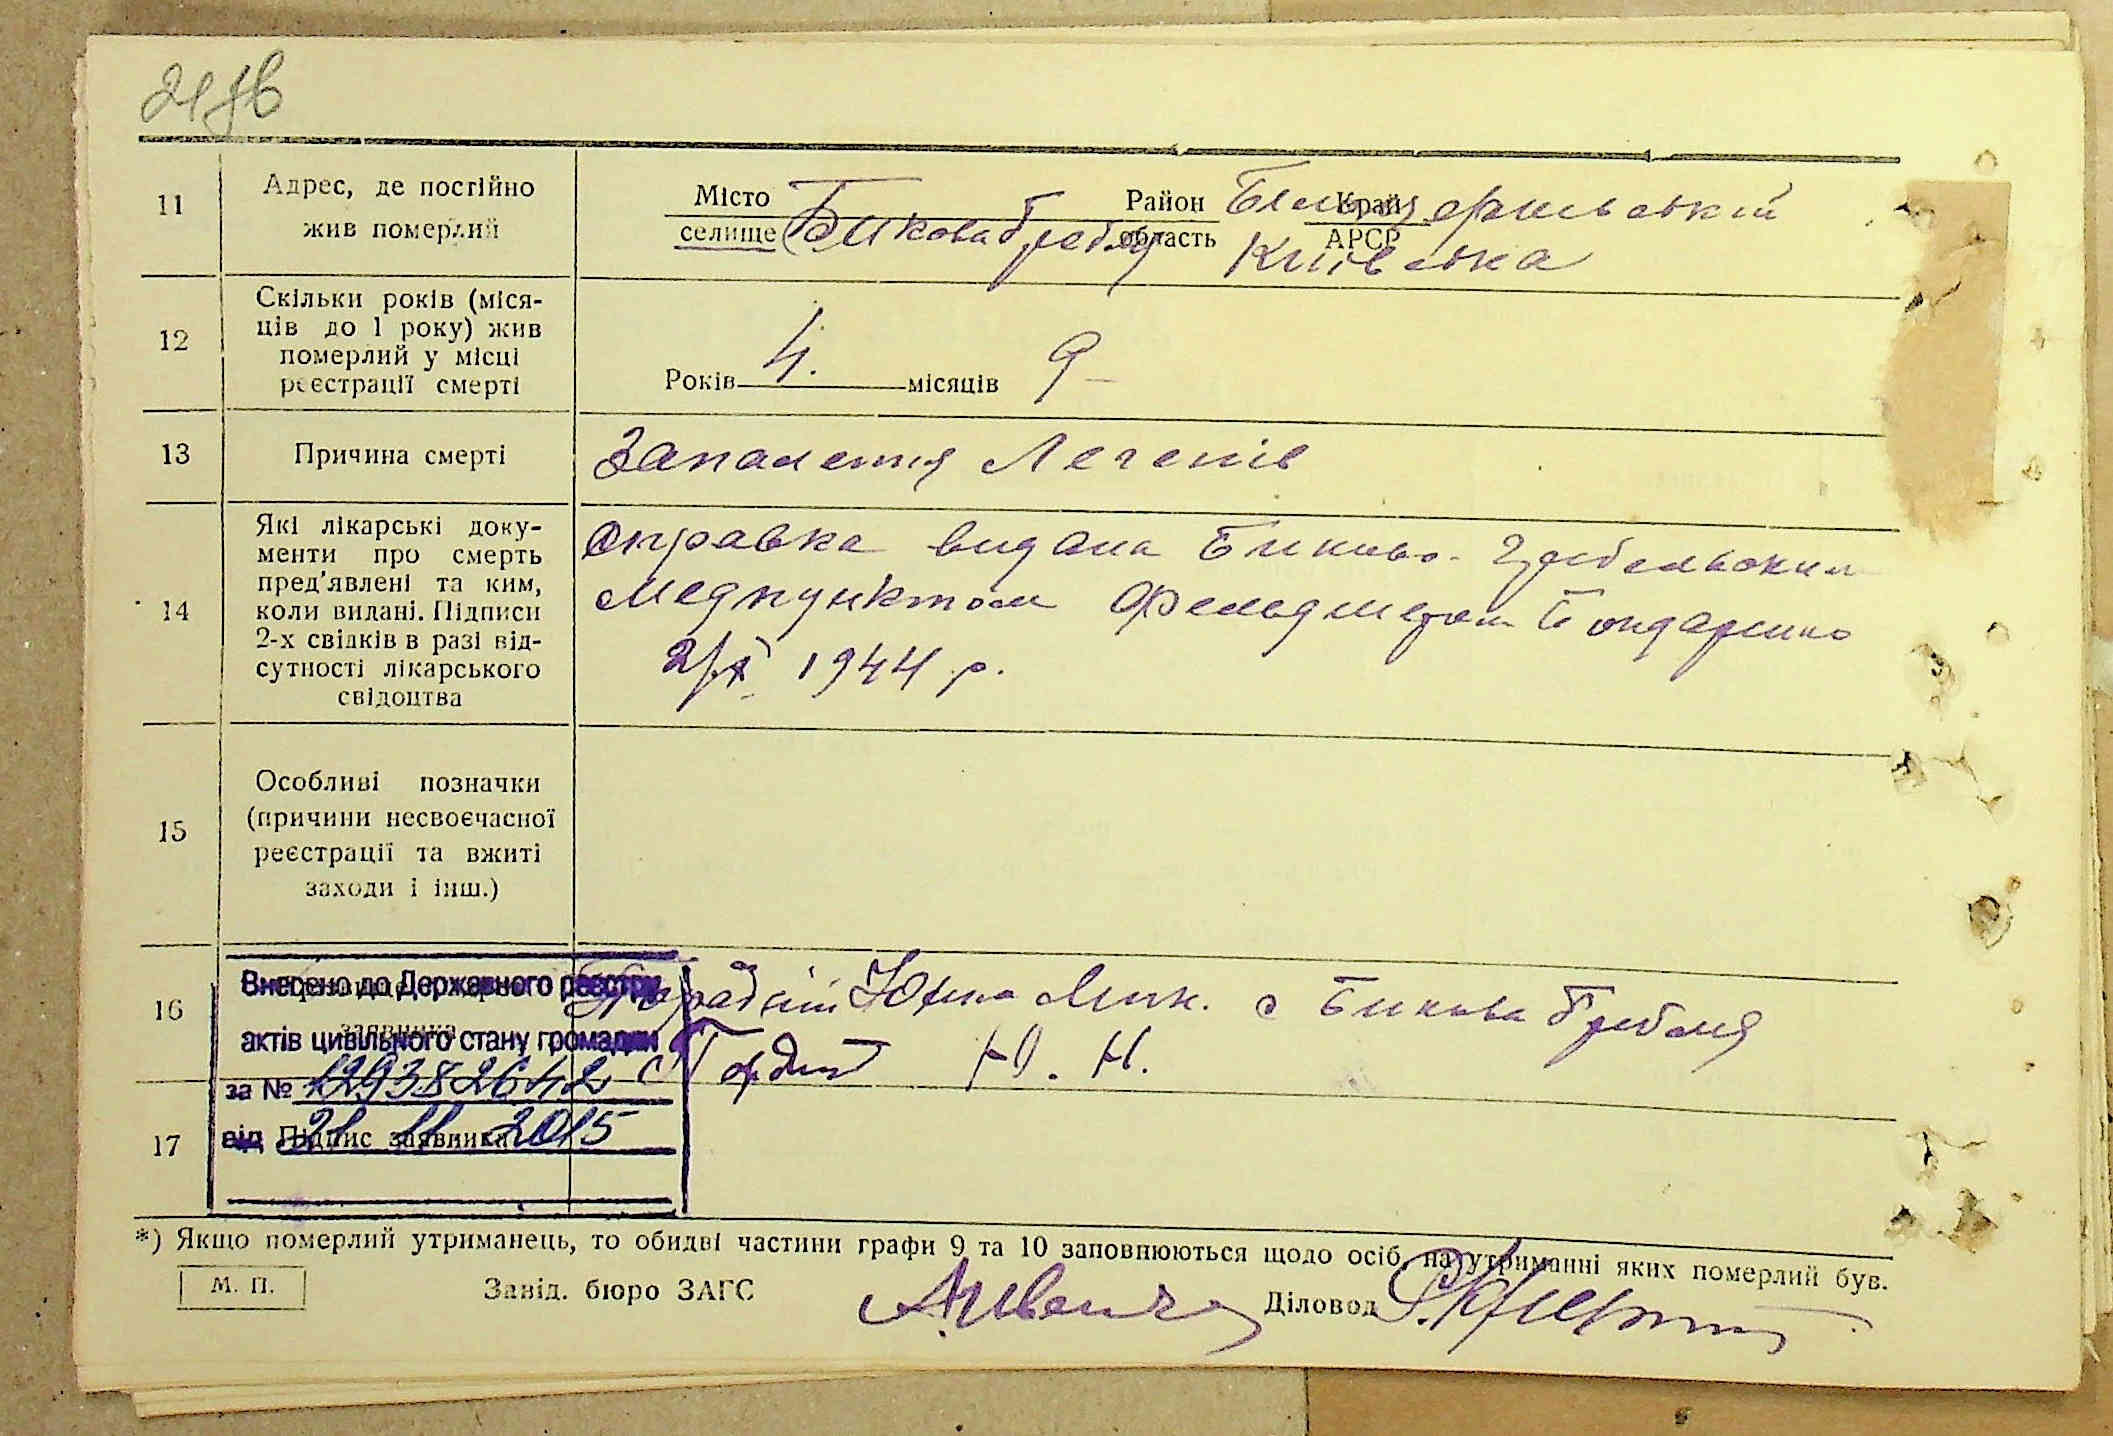 21 зв
11
Адрес, де постійно
жив померлий
Місто Район Край
селище область АРСР
Бикова Гребля Білоцерківський
Київська
12
Скільки років (міся-
ців до 1 року) жив
померлий у місці
реєстрації смерті
Років 4. місяців 9
13
Причина смерті
Запалення Легенів
14
Які лікарські доку-
менти про смерть
пред'явлені та ким,
коли видані. Підписи
2-х свідків в разі від-
сутності лікарського
свідоцтва
справка видана Биково-Гребельським
Медпунктом Фельдшером Бондаренко
2/X 1944 р.
15
Особливі позначки
(причини несвоєчасної
реєстрації та вжиті
заходи і інш.)
16
заявника
Юхим Мик. с Бикова Гребля
Ю. Н.
Внесено до Державного реєстри
актів цивільного стану громадян
за № 129382642
від 21 11 2015
17
Підпис заявника
*) Якщо померлий утриманець, то обидві частини графи 9 та 10 заповнюються щодо осіб, на утриманні яких померлий був.
М. П.
Завід. бюро ЗАГС
Діловод